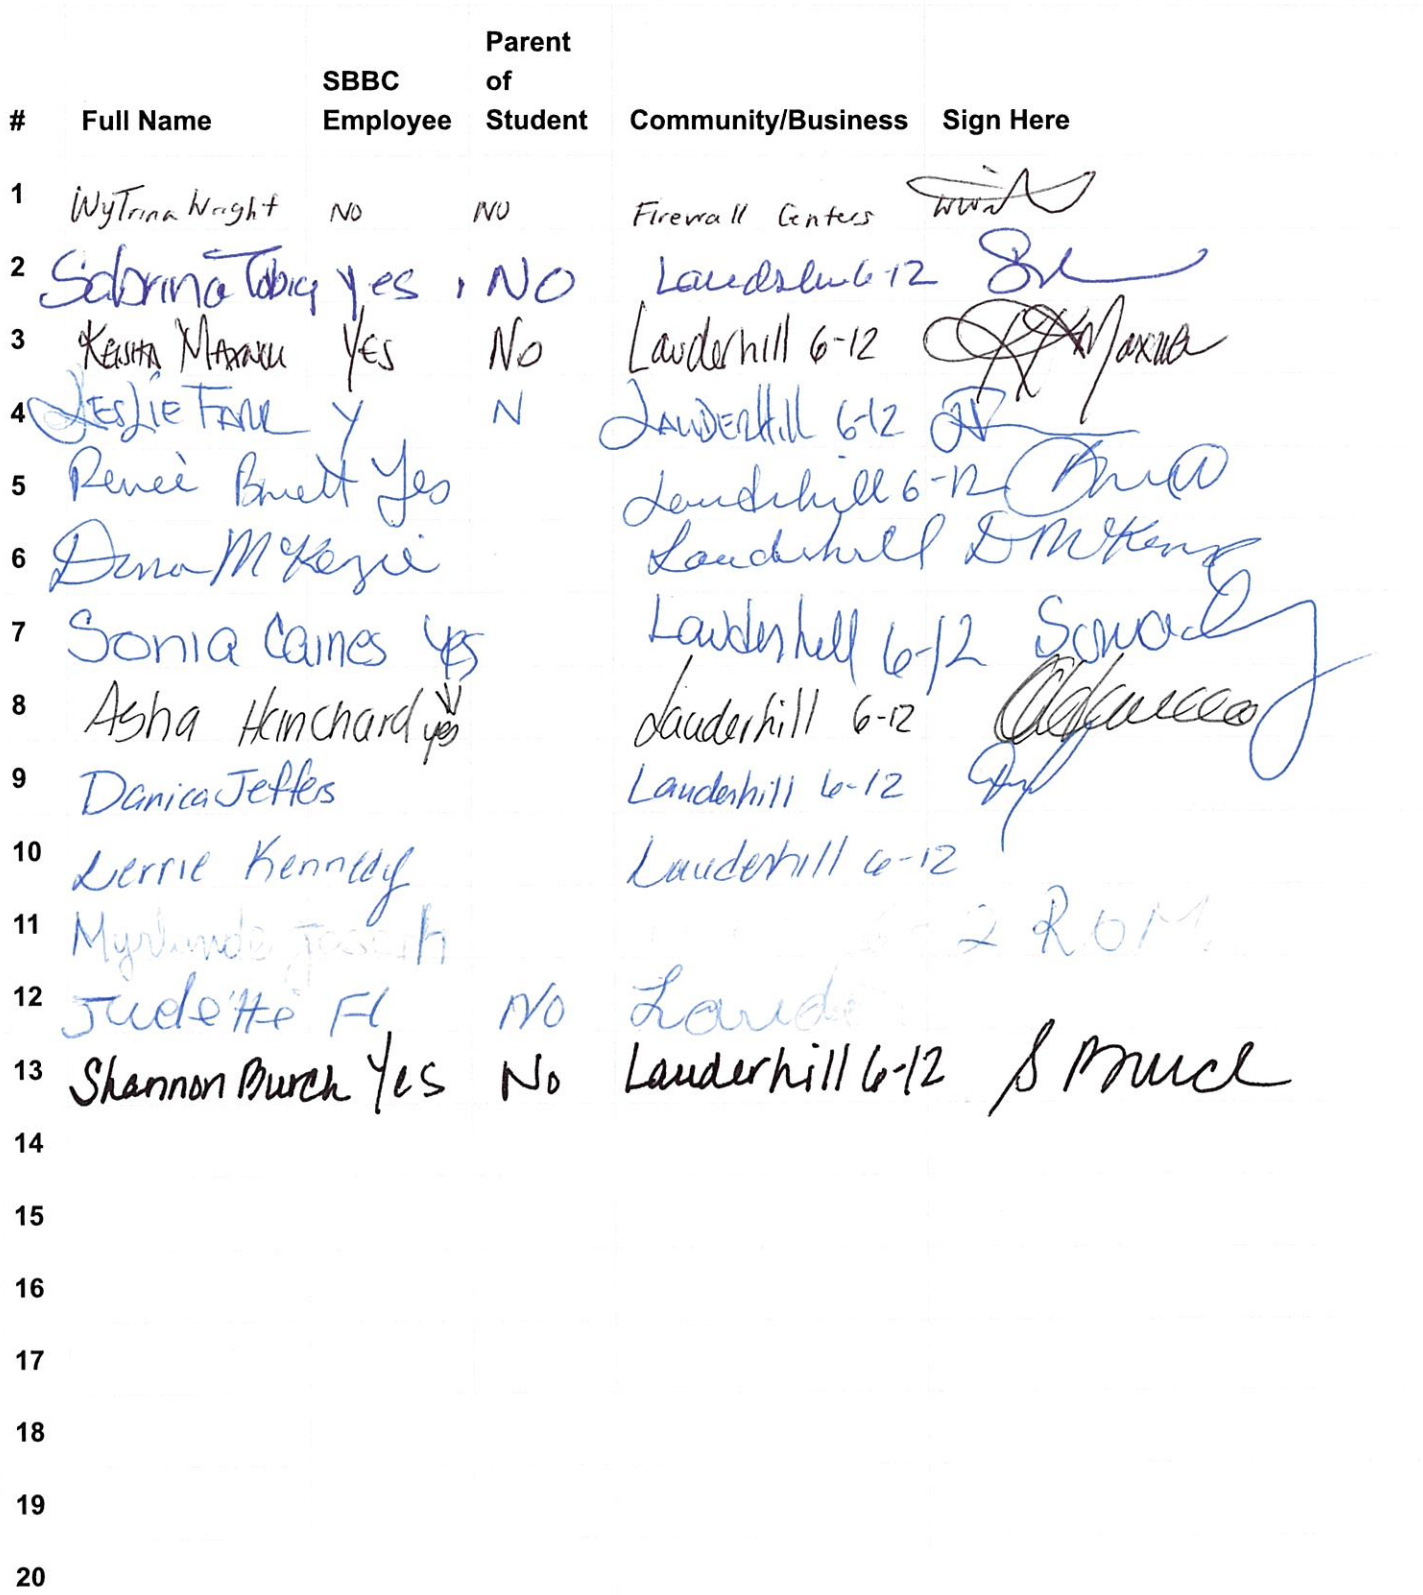 Parent
SBBC of
# Full Name Employee Student Community/Business Sign Here
1 WyTrina Wright NO NO Firewall Centers
2 Sabrina Tobias Yes , NO 6-12
3 Keisha Yes No Lauderhill 6-12
4 Leslie Y N Lauderhill 6-12
5 Reneè Yes Lauderhill 6-12
6 McKezie Lauderhill D McKenzie
7 Sonia Caines yes Lauderhill 6-12
8 Asha Hanchard yes Lauderhill 6-12
9 Danica Jeffers Lauderhill 6-12
10 Lerrie Kennedy Lauderhill 6-12
11 2 R O M
12 Judette Fl NO Laude
13 Shannon Burch Yes No Lauderhill 6-12
14
15
16
17
18
19
20